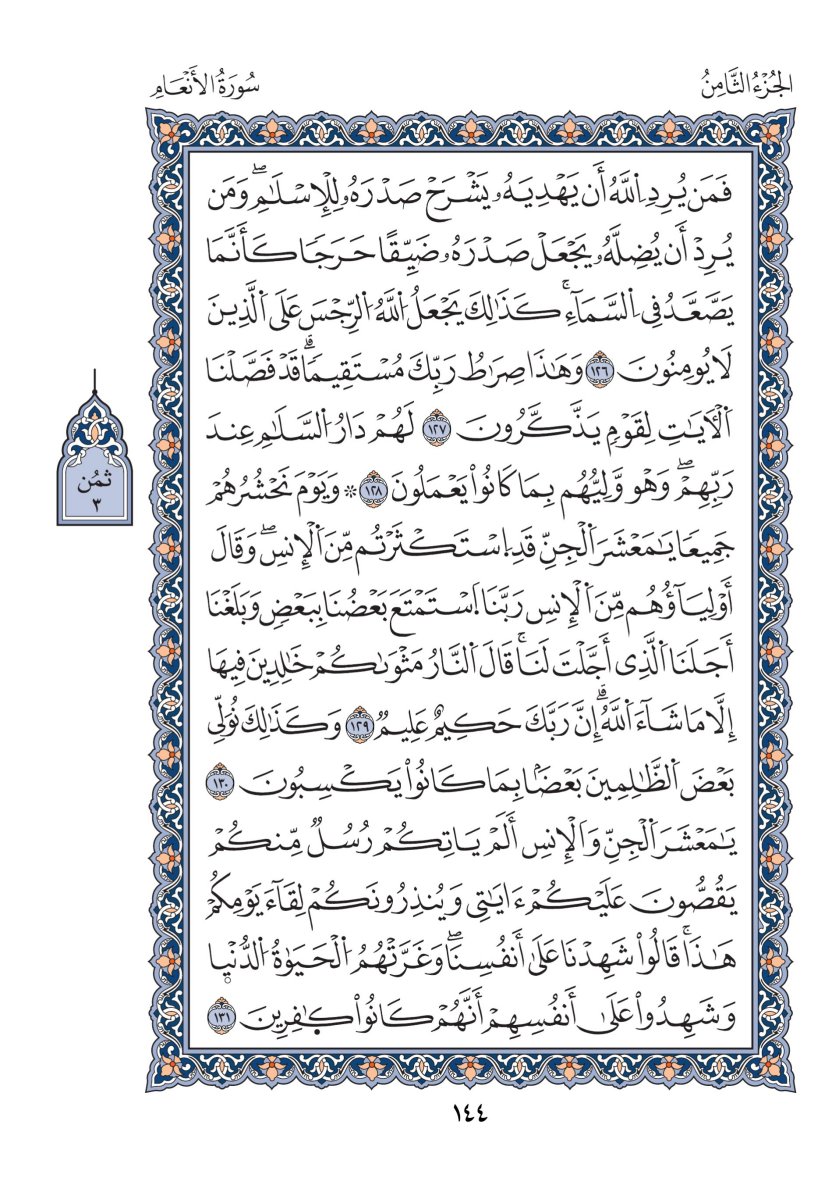 الجُزْءُ الثَّامِنُ
سُورَةُ الأَنْعَامِ
فَمَن يُرِدِ اِ۬للَّهُ أَن يَهْدِيَهُۥ يَشْرَحْ صَدْرَهُۥ لِلْإِسْلَٰمِۖ وَمَن
يُرِدْ أَن يُضِلَّهُۥ يَجْعَلْ صَدْرَهُۥ ضَيِّقًا حَرَجٗا كَأَنَّمَا
يَصَّعَّدُ فِي اِ۬لسَّمَآءِۚ كَذَٰلِكَ يَجْعَلُ اُ۬للَّهُ اُ۬لرِّجْسَ عَلَى اَ۬لَّذِينَ
لَا يُومِنُونَ ١٢٦ وَهَٰذَا صِرَٰطُ رَبِّكَ مُسْتَقِيمٗاۗ قَدْ فَصَّلْنَا
اَ۬لْأٓيَٰتِ لِقَوْمٖ يَذَّكَّرُونَ ١٢٧ لَهُمْ دَارُ اُ۬لسَّلَٰمِ عِندَ
رَبِّهِمْۖ وَهْوَ وَلِيُّهُم بِمَا كَانُواْ يَعْمَلُونَ ١٢٨ ۞ وَيَوْمَ نَحْشُرُهُمْ
جَمِيعٗا يَٰمَعْشَرَ اَ۬لْجِنِّ قَدِ اِ۪سْتَكْثَرْتُم مِّنَ اَ۬لْإِنسِۖ وَقَالَ
أَوْلِيَآؤُهُم مِّنَ اَ۬لْإِنسِ رَبَّنَا اَ۪سْتَمْتَعَ بَعْضُنَا بِبَعْضٖ وَبَلَغْنَا
أَجَلَنَا اَ۬لَّذِي أَجَّلْتَ لَنَاۚ قَالَ اَ۬لنَّارُ مَثْوَىٰكُمْ خَٰلِدِينَ فِيهَا
إِلَّا مَا شَآءَ اَ۬للَّهُۗ إِنَّ رَبَّكَ حَكِيمٌ عَلِيمٞ ١٢٩ وَكَذَٰلِكَ نُوَلِّي
بَعْضَ اَ۬لظَّٰلِمِينَ بَعْضَۢا بِمَا كَانُواْ يَكْسِبُونَ ١٣٠
يَٰمَعْشَرَ اَ۬لْجِنِّ وَالْإِنسِ أَلَمْ يَاتِكُمْ رُسُلٞ مِّنكُمْ
يَقُصُّونَ عَلَيْكُمْ ءَايَٰتِي وَيُنذِرُونَكُمْ لِقَآءَ يَوْمِكُمْ
هَٰذَاۚ قَالُواْ شَهِدْنَا عَلَىٰ أَنفُسِنَاۖ وَغَرَّتْهُمُ اُ۬لْحَيَوٰةُ اُ۬لدُّنْيٜا
وَشَهِدُواْ عَلَىٰ أَنفُسِهِمْ أَنَّهُمْ كَانُواْ كٰٜفِرِينَ ١٣١
ثمُن
٣
١٤٤